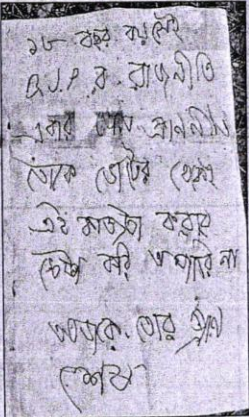 ১৮ বছর বয়সেই
B.J.P র রাজনীতি
এবার তোর প্রাননীতি
তোকে ভোটের থেকেই
এই কাজটা করার
চেষ্টা করি পারি না
আজকে তোর প্রান
শেষ